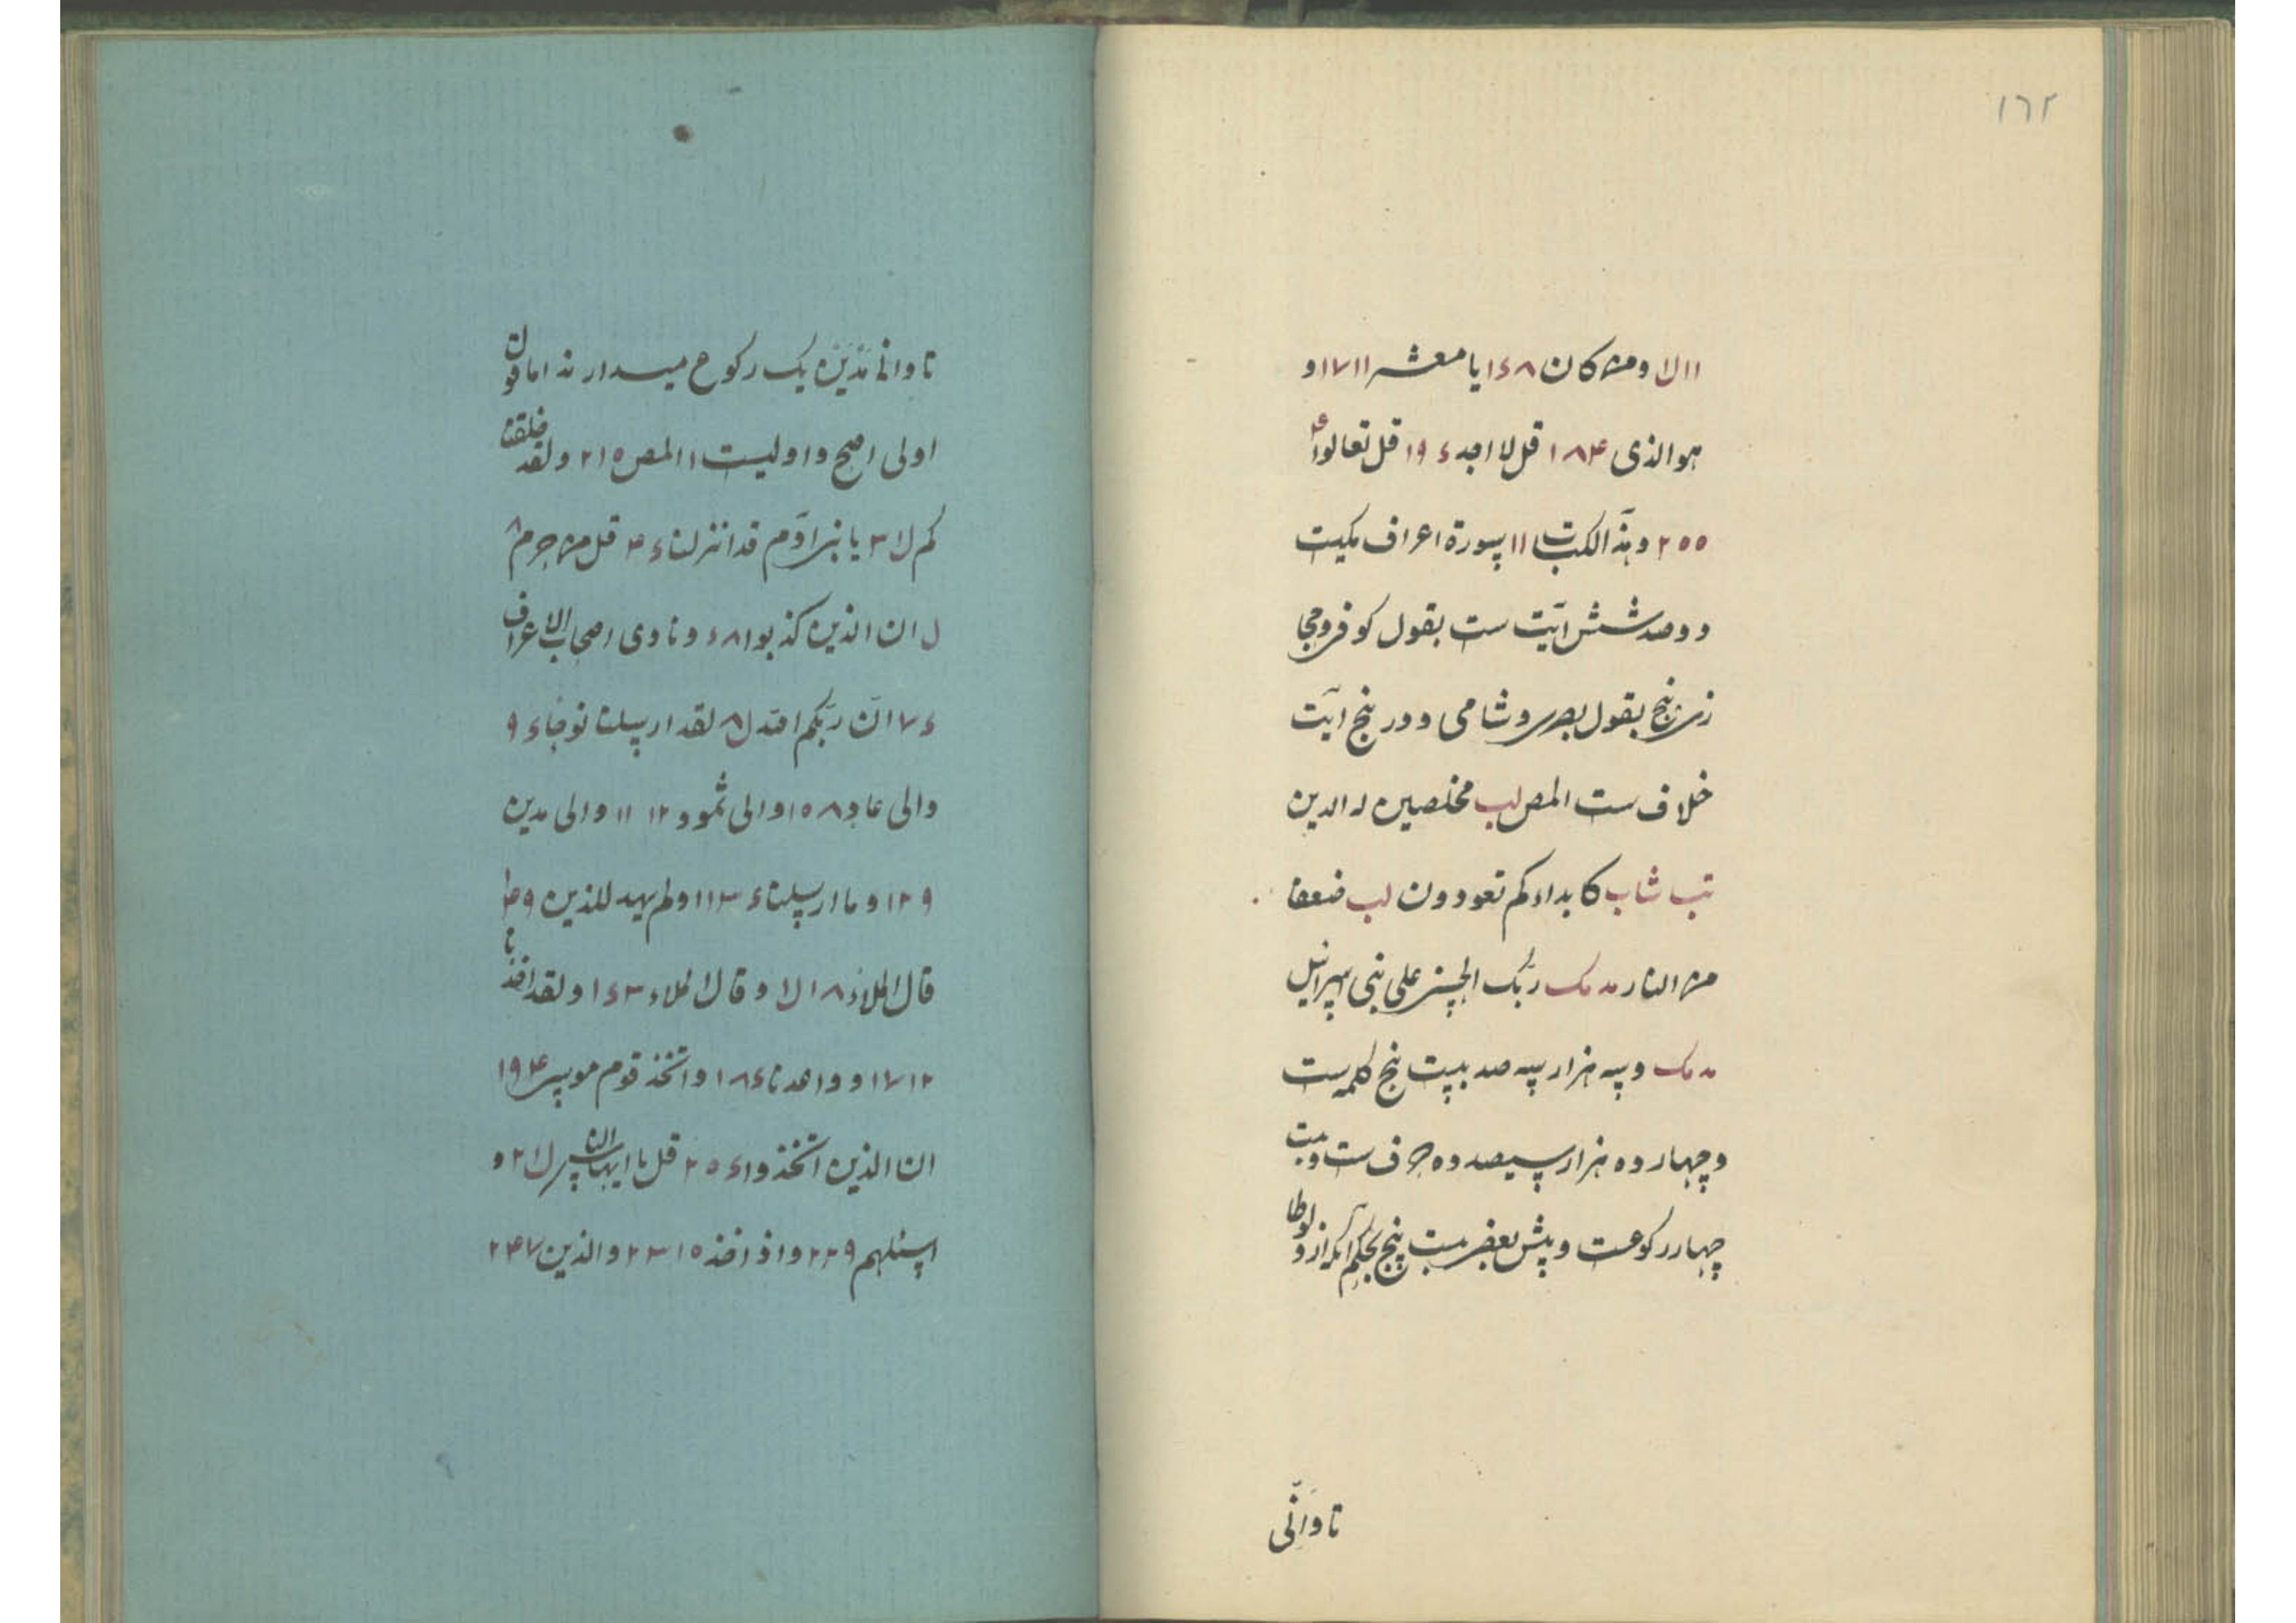 ١٦٢
١١ لا ومن كان ١٤٨ يا معشر ١٧١١ و
هو الذی ١٨۴ قل لا اجد ١٩٤ قل تعالوا
٢٥٥ وهذا الكتب ١١ سورة اعراف مکیست
دوصد شش آیت ست بقول کوفی و حجا
زی پنج بقول بصری و شامی و در پنج آیت
خلاف ست المص لب مخلصین له الدین
تب شاب کا بداءکم تعودون لب ضعفا
من النار مد مك ربّک الحسنی علی بنی اسرائیل
مد مك وسه هزار سه صد بیست پنج کلمه ست
وچهارده هزار سیصد ده حرف ست و بیست
چهار رکوعست وپیش بعضی بیست پنج بحکم آنکه از ولوطا
تا وانّی
تا وانی نذیر یک رکوع میدارند اما قول
اولی اصح واولیست ١ المص ٢١٥ ولقد خلقنا
کم لا ٣ یا بنی آدم قد انزلنا ٤٣ قل من حرم ٨
ل ان الذین کذبوا ٤٨ ونادی اصحاب الاعراف
٧٤ انّ ربّکم الله ل ٨ لقد ارسلنا نوحا ٩٤
والی عاد ١٥٨ والی ثمود ١٢ ١١ والی مدین
١٢٩ وما ارسلنا ١١٣٤ اولم یهد للذین
قال الملاء ١٨ لا وقال الملاء ١٤٣ ولقد اخذنا
١٧١٢ و واعدنا ١٨٤ واتّخذ قوم موسی ١٩۴
ان الذین اتّخذوا ٢٥٤ قل یا ایها الناس لا ٢ و
اسئلهم ٢٢٩ واذ اخذ ٢٣١٥ والذین ٢۴٧